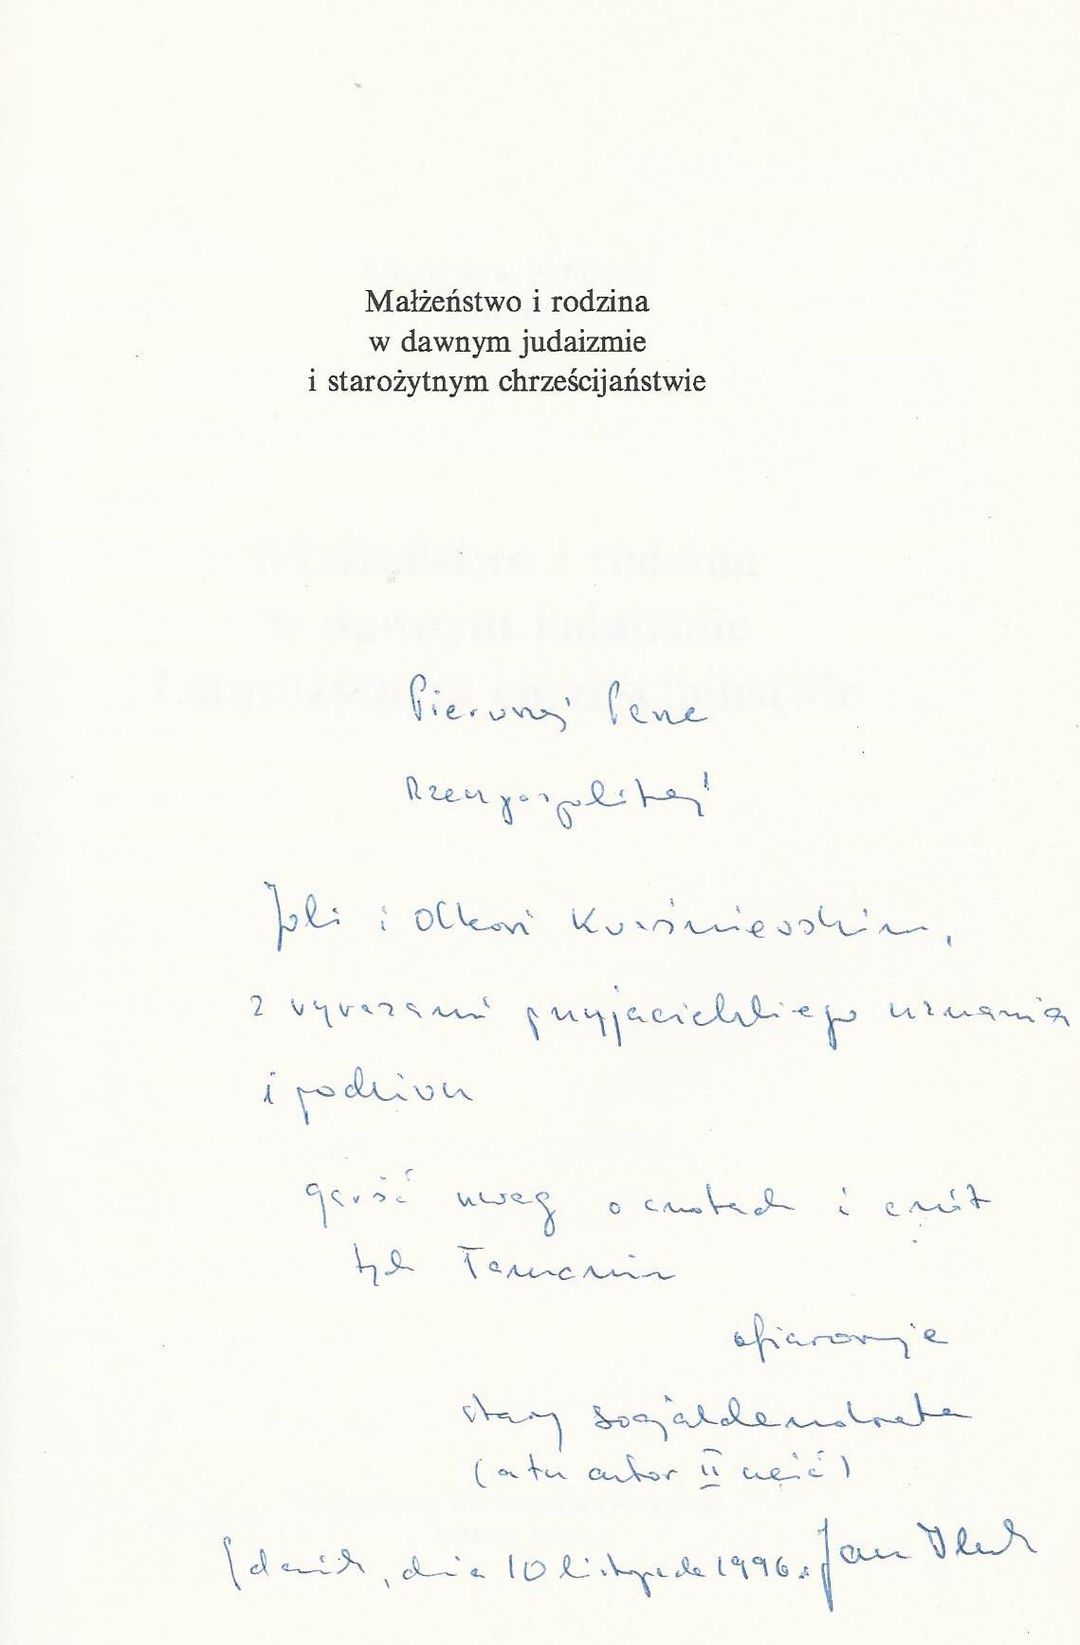 Małżeństwo i rodzina
w dawnym judaizmie
i starożytnym chrześcijaństwie
Pierwszej Parze
Rzeczypospolitej
Joli i Olkowi Kwaśniewskim,
z wyrazami przyjacielskiego uznania
i podziwu
garść uwag o cnotach i
tych
ofiarowuje
stary socjaldemokrata
(a tu autor II części)
Gdańsk, dnia 10 listopada 1996 r. Jan Iluk